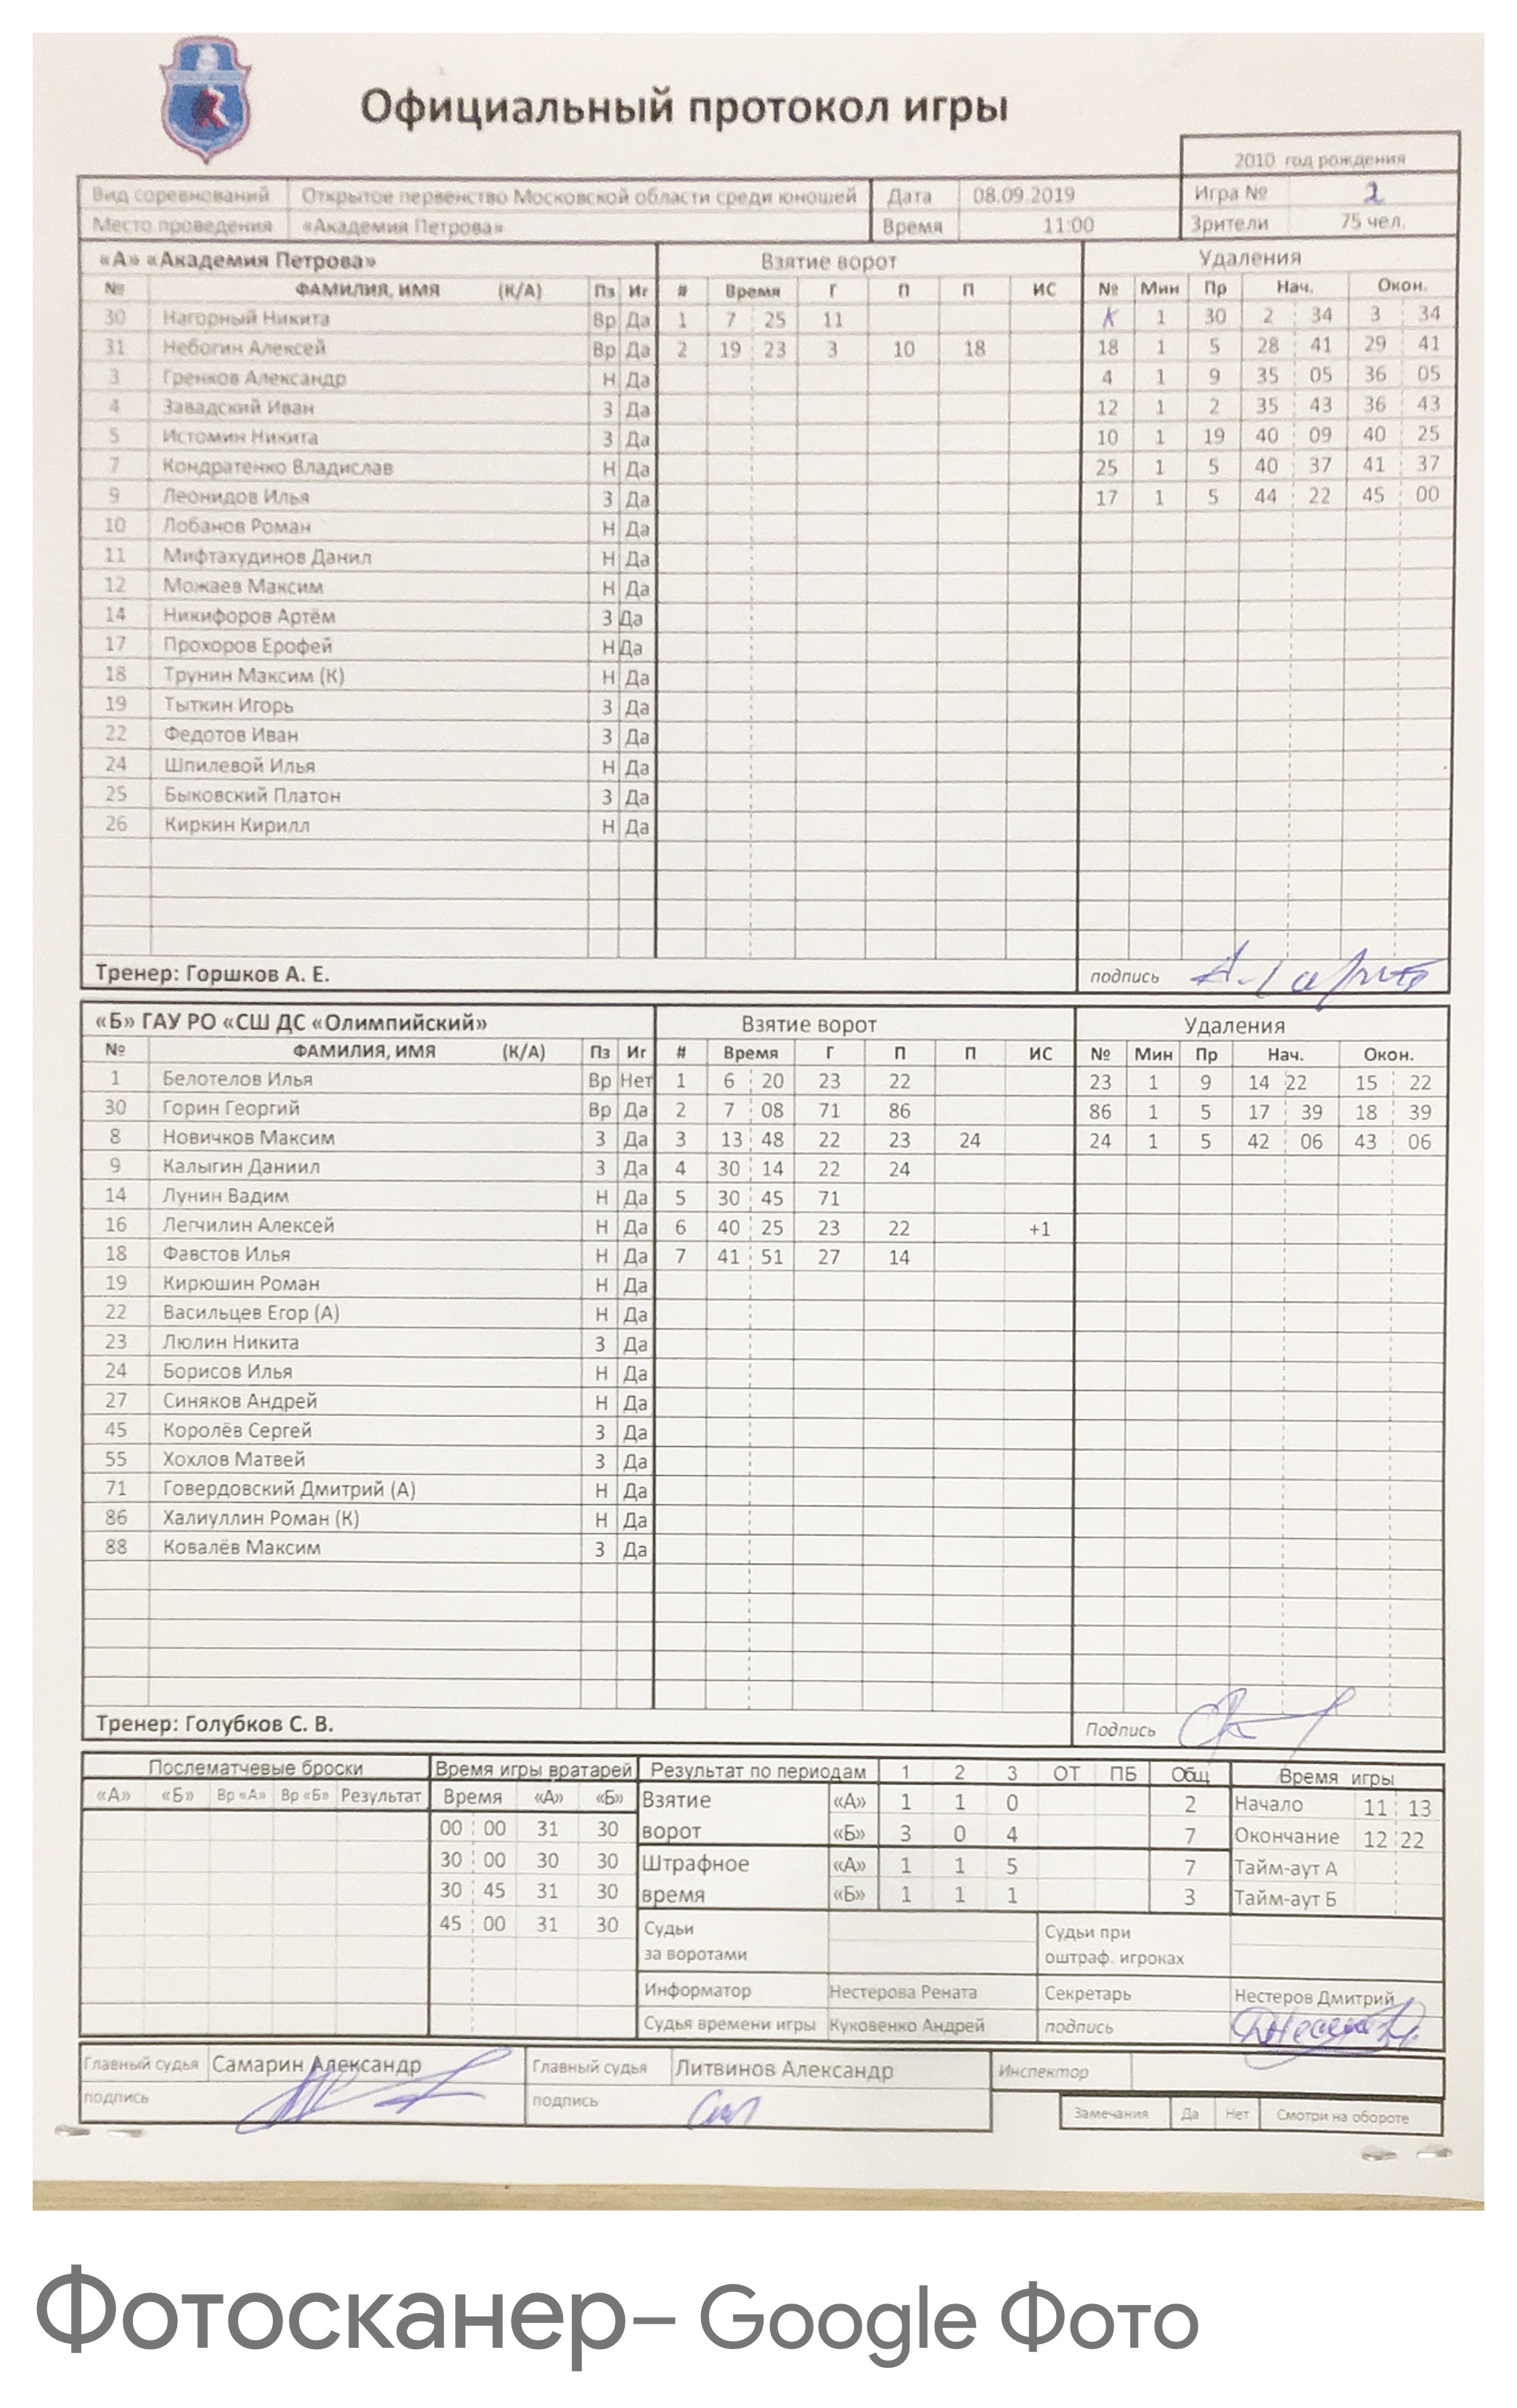 Официальный протокол игры
2010 год рождения
Вид соревнований Открытое первенство Московской области среди юношей Дата 08.09.2019 Игра № 2
Место проведения «Академия Петрова» Время 11:00 Зрители 75 чел.
«А» «Академия Петрова» Взятие ворот Удаления
№ ФАМИЛИЯ, ИМЯ (К/А) Пз Иг # Время Г П П ИС № Мин Пр Нач. Окон.
30 Нагорный Никита Вр Да 1 7 25 11 К 1 30 2 34 3 34
31 Небогин Алексей Вр Да 2 19 23 3 10 18 18 1 5 28 41 29 41
3 Гренков Александр Н Да 4 1 9 35 05 36 05
4 Завадский Иван З Да 12 1 2 35 43 36 43
5 Истомин Никита З Да 10 1 19 40 09 40 25
7 Кондратенко Владислав Н Да 25 1 5 40 37 41 37
9 Леонидов Илья З Да 17 1 5 44 22 45 00
10 Лобанов Роман Н Да
11 Мифтахудинов Данил Н Да
12 Можаев Максим Н Да
14 Никифоров Артём З Да
17 Прохоров Ерофей Н Да
18 Трунин Максим (К) Н Да
19 Тыткин Игорь З Да
22 Федотов Иван З Да
24 Шпилевой Илья Н Да
25 Быковский Платон З Да
26 Киркин Кирилл Н Да
Тренер: Горшков А. Е. подпись
«Б» ГАУ РО «СШ ДС «Олимпийский» Взятие ворот Удаления
№ ФАМИЛИЯ, ИМЯ (К/А) Пз Иг # Время Г П П ИС № Мин Пр Нач. Окон.
1 Белотелов Илья Вр Нет 1 6 20 23 22 23 1 9 14 22 15 22
30 Горин Георгий Вр Да 2 7 08 71 86 86 1 5 17 39 18 39
8 Новичков Максим З Да 3 13 48 22 23 24 24 1 5 42 06 43 06
9 Калыгин Даниил З Да 4 30 14 22 24
14 Лунин Вадим Н Да 5 30 45 71
16 Легчилин Алексей Н Да 6 40 25 23 22 +1
18 Фавстов Илья Н Да 7 41 51 27 14
19 Кирюшин Роман Н Да
22 Васильцев Егор (А) Н Да
23 Люлин Никита З Да
24 Борисов Илья Н Да
27 Синяков Андрей Н Да
45 Королёв Сергей З Да
55 Хохлов Матвей З Да
71 Говердовский Дмитрий (А) Н Да
86 Халиуллин Роман (К) Н Да
88 Ковалёв Максим З Да
Тренер: Голубков С. В. Подпись
Послематчевые броски Время игры вратарей Результат по периодам 1 2 3 ОТ ПБ Общ Время игры
«А» «Б» Вр «А» Вр «Б» Результат Время «А» «Б» Взятие «А» 1 1 0 2 Начало 11 13
00 00 31 30 ворот «Б» 3 0 4 7 Окончание 12 22
30 00 30 30 Штрафное «А» 1 1 5 7 Тайм-аут А
30 45 31 30 время «Б» 1 1 1 3 Тайм-аут Б
45 00 31 30 Судьи Судьи при
за воротами оштраф. игроках
Информатор Нестерова Рената Секретарь Нестеров Дмитрий
Судья времени игры Куковенко Андрей подпись
Главный судья Самарин Александр Главный судья Литвинов Александр Инспектор
подпись подпись Замечания Да Нет Смотри на обороте
Фотосканер– Google Фото